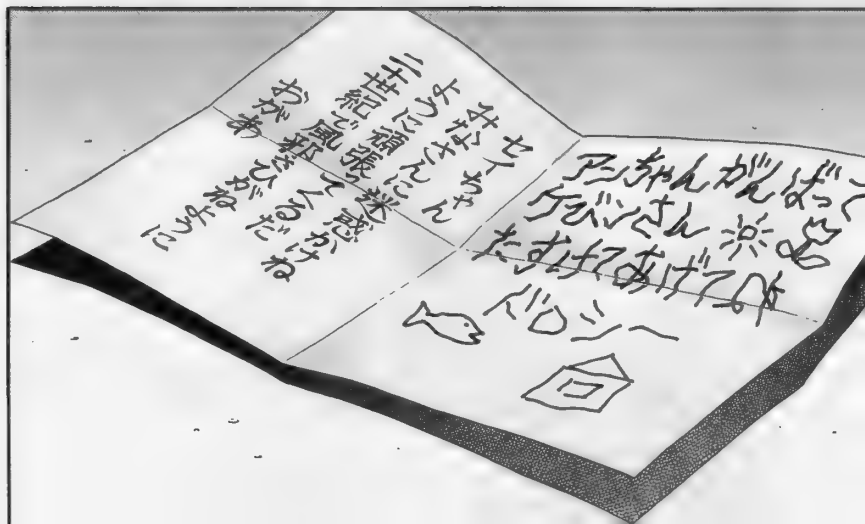 セイちゃん
みなさんに迷惑かけね
ように頑張ってくるだ
二十世紀で風邪をひがねように
おがあ
アンちゃん がんばって
ケビンさん
たすけてあげてね